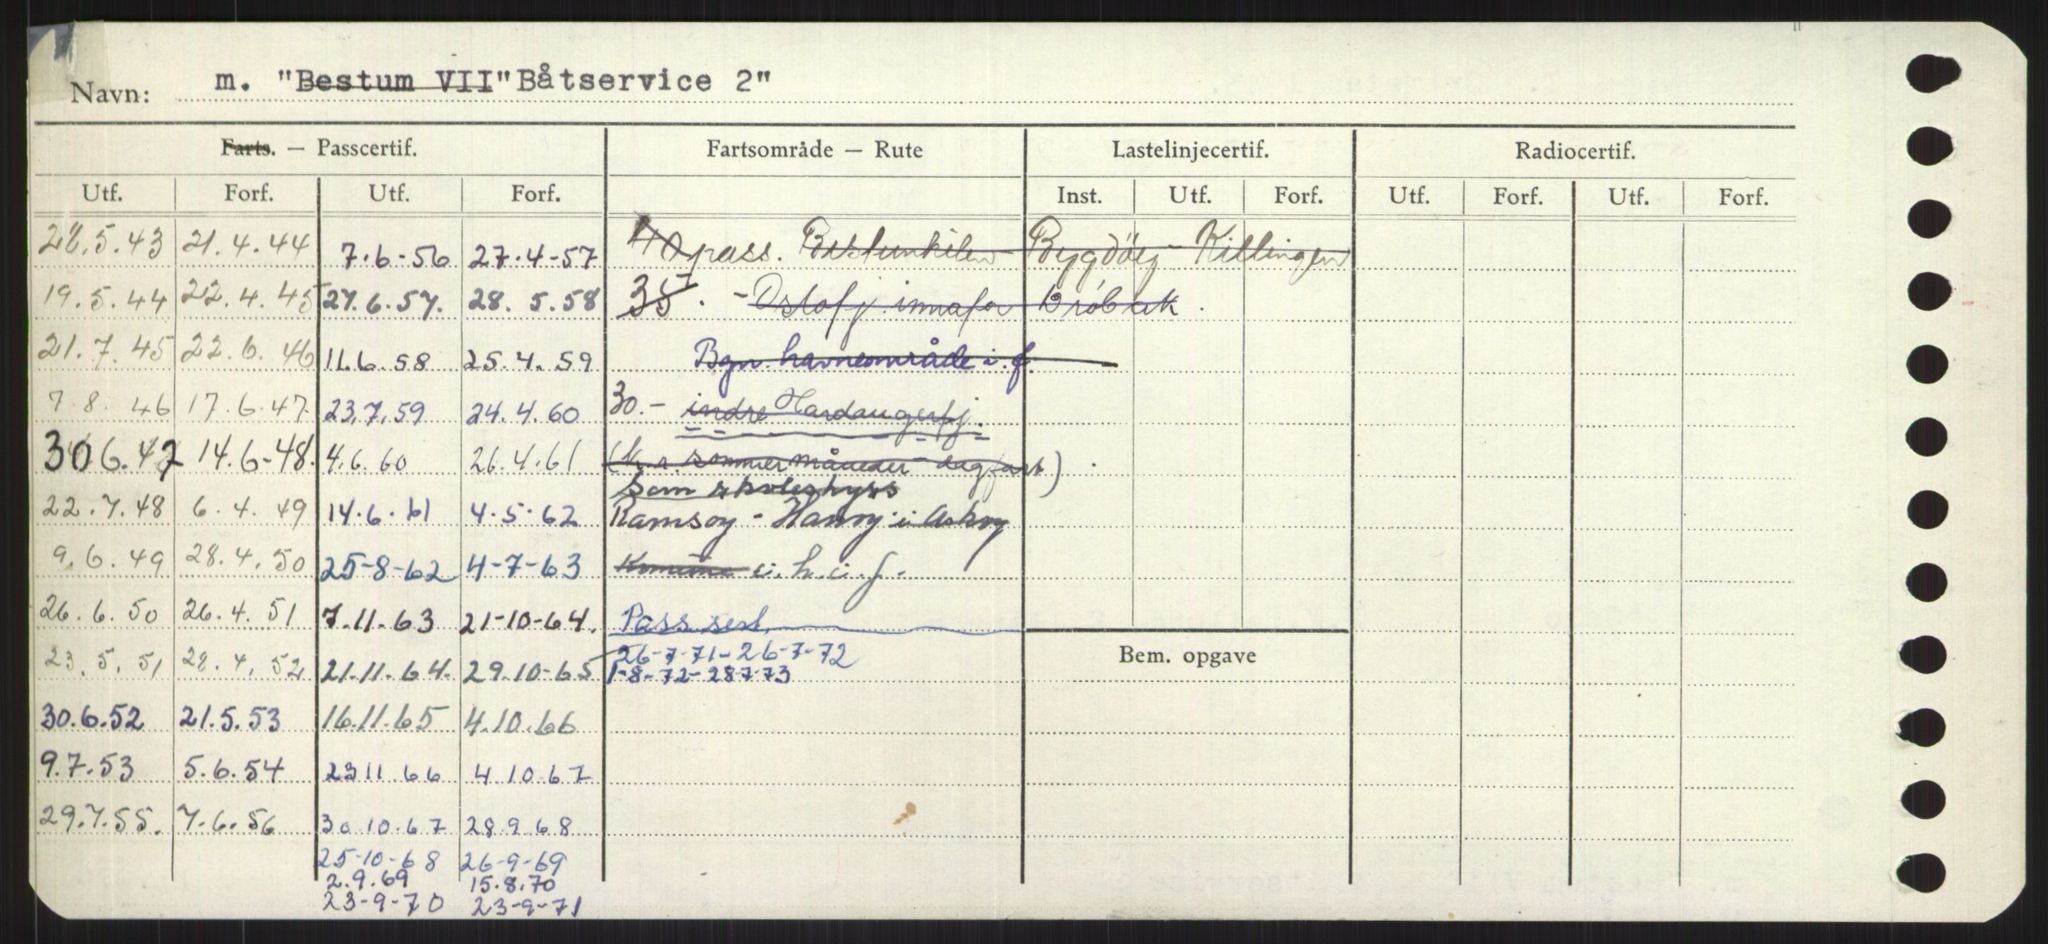 Navn: m. "Bestum VII" Båtservice 2"
Farts. — Passcertif. Fartsområde — Rute Lastelinjecertif. Radiocertif.
Utf. Forf. Utf. Forf. Inst. Utf. Forf. Utf. Forf. Utf. Forf.
28.5.43 21.4.44 7.6-56 27.4-57 40 pass. Bestumkilen - Bygdöy - Killingen
19.5.44 22.4.45 27.6.57. 28.5.58 35. - Oslofj. innafor Dröbak.
21.7.45 22.6.46 11.6.58 25.4.59 Bgn. havneområde i. f.
7.8.46 17.6.47 23.7.59 24.4.60 30.- indre Hardangerfj.
30.6.47 14.6-48. 4.6.60 26.4.61 sommer måneder - dagfart)
Som skoleskyss
22.7.48 6.4.49 14.6.61 4.5.62 Ramsøy - Hanøy i Askøy
9.6.49 28.4.50 25-8-62 4-7-63 Komune i. h. i. f.
26.6.50 26.4.51 7.11.63 21-10-64. Pass sert.
26-7-71 - 26-7-72
23.5.51 28.4.52 21.11.64. 29.10-65 1-8-72 - 28-7-73
Bem. opgave
30.6.52 21.5.53 16.11.65 4.10.66
9.7.53 5.6.54 23 11.66 4.10.67
29.7.55. 7.6.56 30.10.67 28.9.68
25-10-68 26-9-69
2.9.69 15.8.70
23-9-70 23-9-71